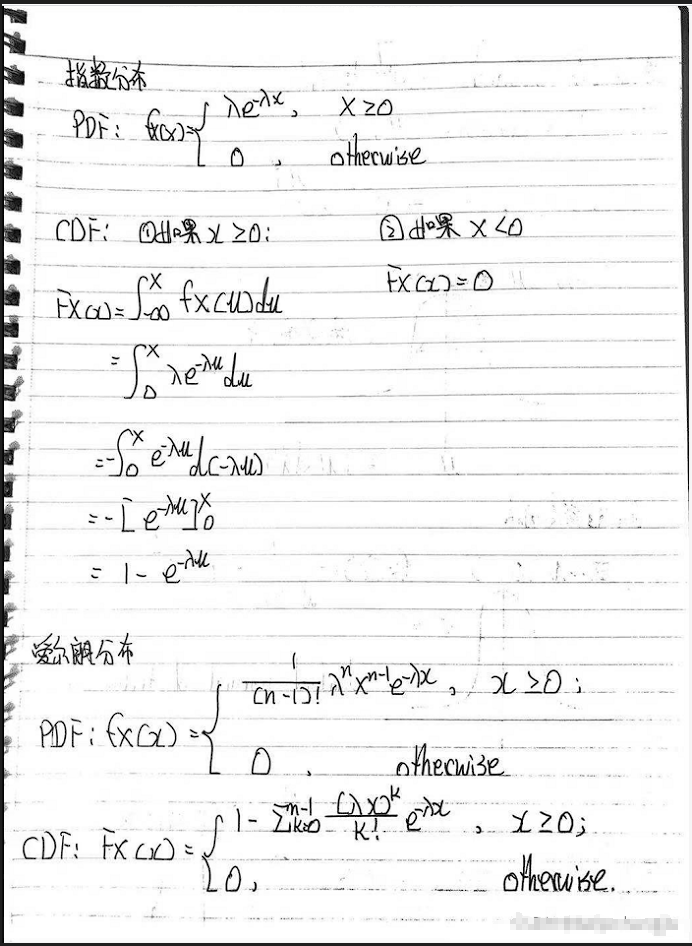 指数分布
PDF: fx(x)={ λe^{-λx}, x≥0
0, otherwise
CDF: ①如果 x≥0: ②如果 x<0
Fx(x)=∫_{-∞}^{x} fx(u)du Fx(x)=0
=∫_{0}^{x} λe^{-λu}du
=-∫_{0}^{x} e^{-λu}d(-λu)
=-[e^{-λu}]_{0}^{x}
=1-e^{-λu}
爱尔朗分布
PDF: fx(x)={ \frac{1}{(n-1)!}λ^{n}x^{n-1}e^{-λx}, x≥0;
0, otherwise
CDF: Fx(x)={ 1-∑_{k=0}^{n-1}\frac{(λx)^{k}}{k!}e^{-λx}, x≥0;
0, otherwise.